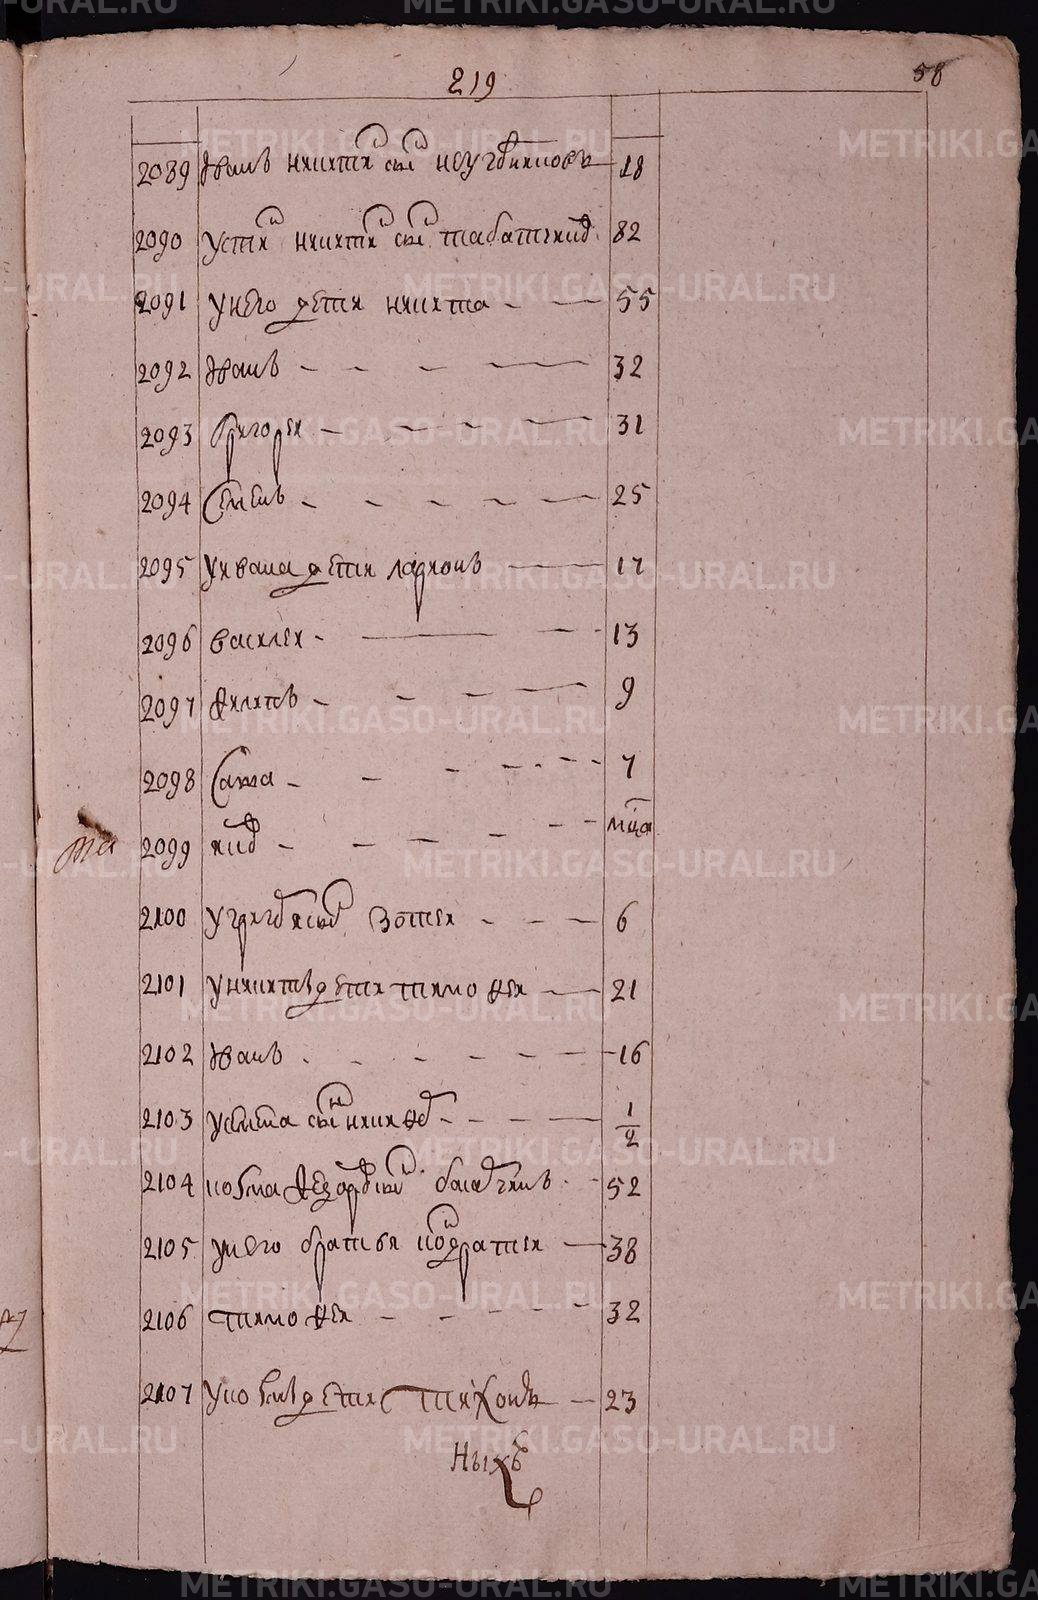 219
58
2089 Иванъ никитинъ сынъ 18
2090 устинъ никитинъ сынъ табатчиковъ 82
2091 у него дети никита 55
2092 Иванъ 32
2093 григорей 31
2094 Семенъ 25
2095 у ивана дети ларионъ 17
2096 василей 13
2097 филипъ 9
2098 Савва 7
2099 мца
2100 у григорья сынъ Зотей 6
2101 у никиты дети тимофей 21
2102 Иванъ 16
2103 сынъ никифоръ 1/2
2104 козма федоровъ сынъ 52
2105 у него братья кондратей 38
2106 тимофей 32
2107 у козмы дети тихонъ 23
ныхъ
METRIKI.GASO-URAL.RU